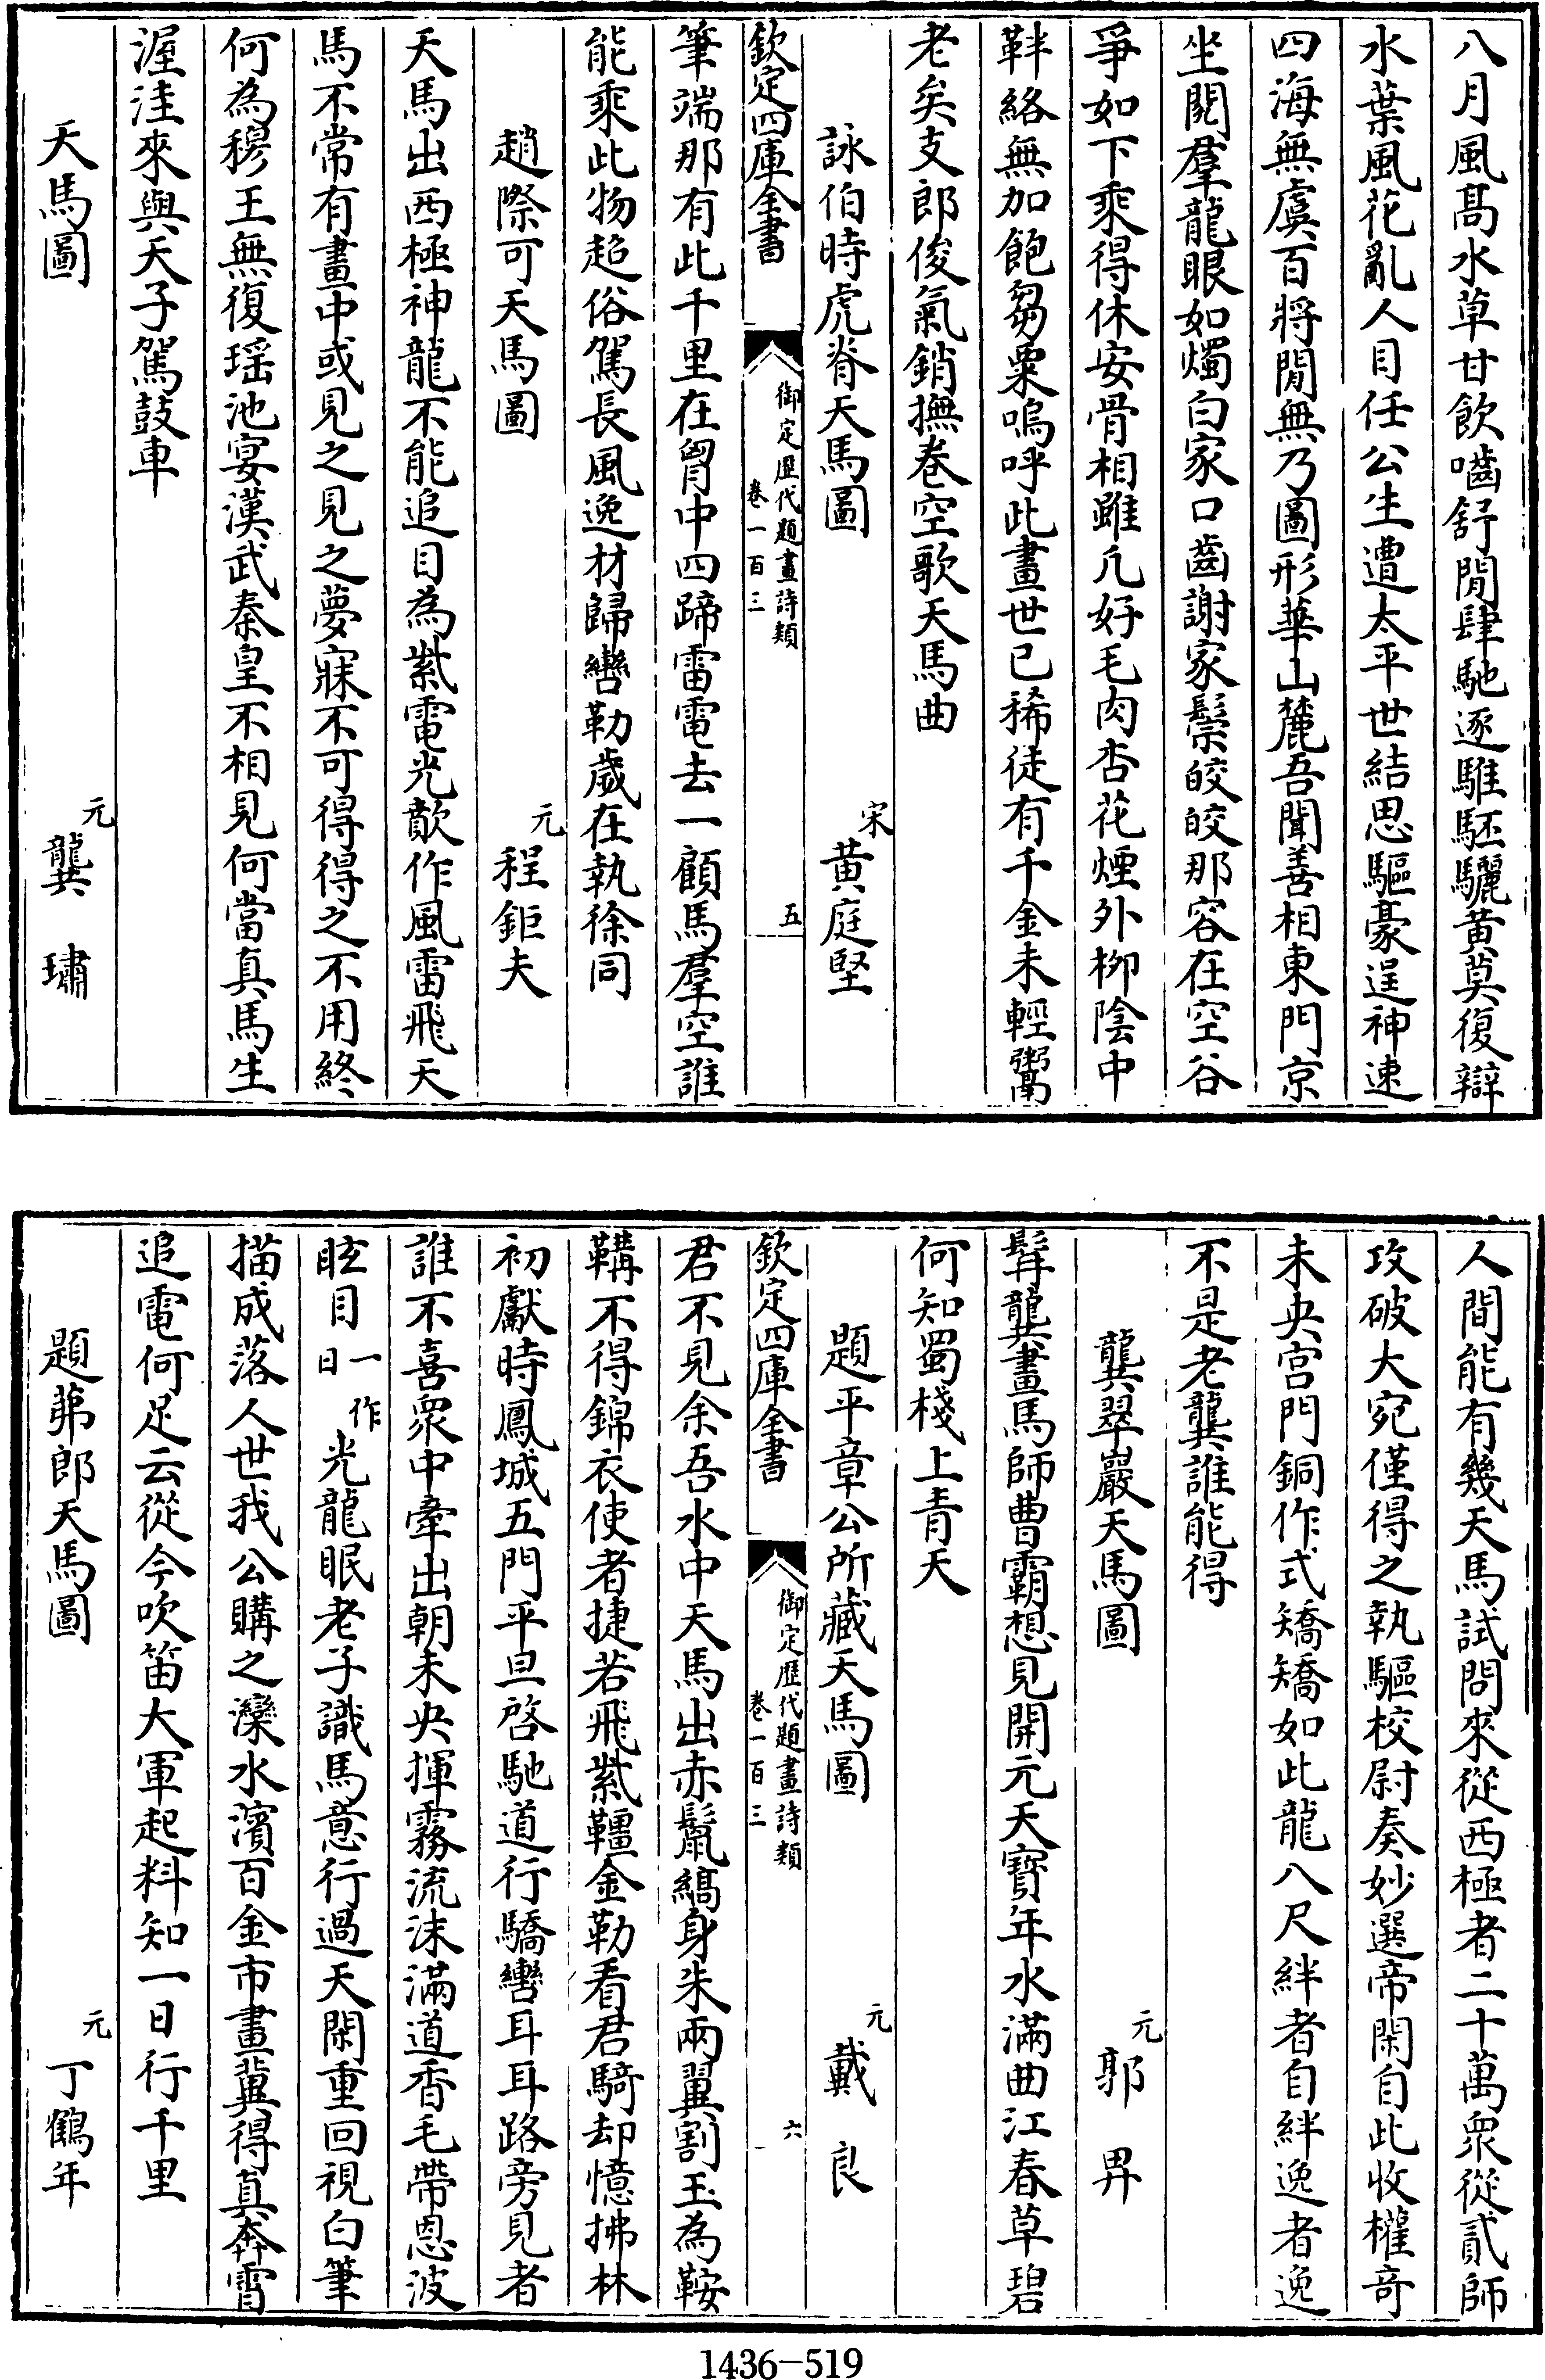 八月風髙水草甘飲嚙舒閒肆馳逐騅駓驪黄莫復辯
水葉風花亂人目任公生遭太平世結思驅豪逞神速
四海無虞百將閒無乃圖形華山麓吾聞善相東門京
坐閲羣龍眼如燭白家口齒謝家鬃皎皎那容在空谷
爭如下乘得休安骨相雖凢好毛肉杏花煙外栁陰中
靽絡無加飽芻粟嗚呼此畫世已稀徒有千金未輕鬻
老矣支郎俊氣銷撫卷空歌天馬曲
詠伯時虎脊天馬圖 宋 黄庭堅
欽定四庫全書 御定歴代題畫詩類 卷一百三 五
筆端那有此千里在胷中四蹄雷電去一顧馬羣空誰
能乘此物超俗駕長風逸材歸轡勒歳在執徐同
趙際可天馬圖 元 程鉅夫
天馬出西極神龍不能追目為紫電光歕作風雷飛天
馬不常有畫中或見之見之夢寐不可得得之不用終
何為穆王無復瑶池宴漢武秦皇不相見何當真馬生
渥洼來與天子駕鼓車
天馬圖 元 龔璛
人間能有幾天馬試問來從西極者二十萬衆從貳師
攻破大宛僅得之執驅校尉奏妙選帝閑自此收權竒
未央宫門銅作式矯矯如此龍八尺絆者自絆逸者逸
不是老龔誰能得
龔翠巖天馬圖 元 郭畀
髯龔畫馬師曹霸想見開元天寶年水滿曲江春草碧
何知蜀棧上青天
題平章公所藏天馬圖 元 戴良
欽定四庫全書 御定歴代題畫詩類 卷一百三 六
君不見余吾水中天馬出赤鬛縞身朱兩翼割玉為鞍
鞲不得錦衣使者捷若飛紫韁金勒看君騎却憶拂林
初獻時鳳城五門平旦啓馳道行驕轡耳耳路旁見者
誰不喜衆中牽出朝未央揮霧流沫滿道香毛帶恩波
眩目一作日光龍眠老子識馬意行過天閑重回視白筆
描成落人世我公購之灤水濱百金市畫冀得真奔霄
追電何足云從今吹笛大軍起料知一日行千里
題茀郎天馬圖 元 丁鶴年
1436-519